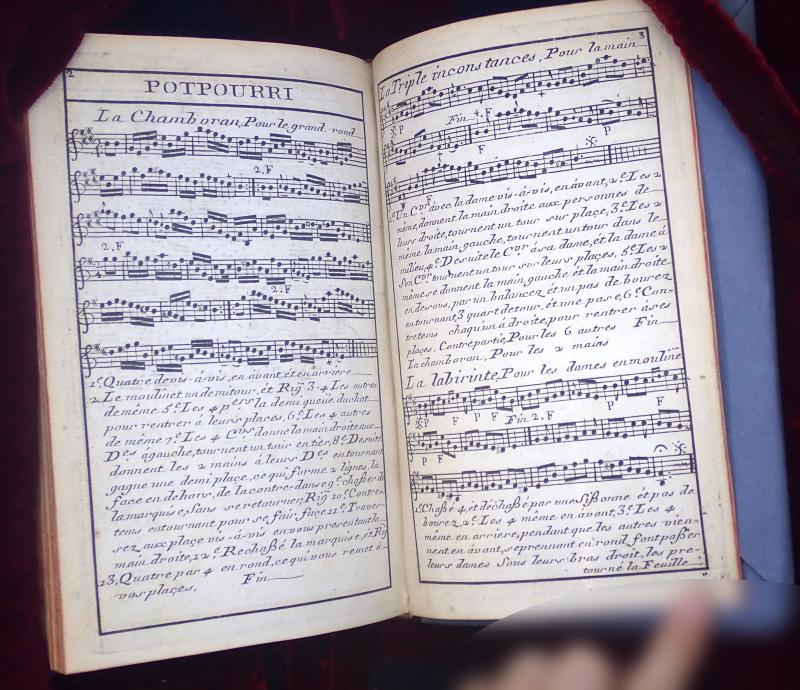 2
POTPOURRI
La Chamboran, Pour le grand rond
2. F
2. F
2. F
1.º Quatre devis-à-vis, en avant, et en arriere
2. Le moulinet un demi tour, et Rig. 3. 4 Les autres
de même. 5.º Les 4 p.rs la demi queüe du chat
pour rentrer à leurs places, 6.º Les 4 autres
de même 7.º Les 4 C.rs donne la main droite aux
D.es agauche, tournent un tour entier, 8.º De suite
donnent les 2 mains à leurs D.es entournant
gagne une demi place, ce qui forme 2 lignes, la
face en dehors, de la contre-danse 9.º chaßer de
la marquise, Sans se retourner, Rig. 10.º Contre-
tems entournant pour se fair façe 11.º Traver-
sez aux plaçe vis-à-vis en vous presentant la
main droite, 12.º Rechaßé la marquise, et Rig.
13. Quatre par 4 en rond, ce qui vous remet à
vos plaçes, Fin
3
La Triple inconstances, Pour la main
P
Fin 4. F
F
F
1.º Un C.er avec la dame vis-à-vis, en avant, 2.º Les 2
même, donnent la main droite aux personnes de
leurs droite, tournent un tour sur plaçe, 3.º Les 2
même la main gauche, tournent un tour dans le
milieu, 4.º De suite le C.er à sa dame, et la dame à
Son C.er tournent un tour sur leurs plaçes, 5.º Les 2
même se donnent la main gauche et la main droite
en desous, par un balancez et un pas de bourez
entournant, 3 quart detour, et une pase, 6.º Con-
tretems chaqu'un à droite, pour rentrer àses
plaçes, Contrepartie, Pour les 6 autres Fin
La chamboran, Pour les 2 mains
La labirinte, Pour les dames en mouline
P F P F P F
Fin 2. F
P F
1.º Chaßé 4, et déchaßé par une Sißonne et pas de
bourez, 2.º Les 4 même en avant, 3.º Les 4
même en arriere, pendant que les autres vien-
nent en avant, se prennant en rond, font paßer
leurs dames Sous leurs bras droit, les pre-
tourné la Feuille